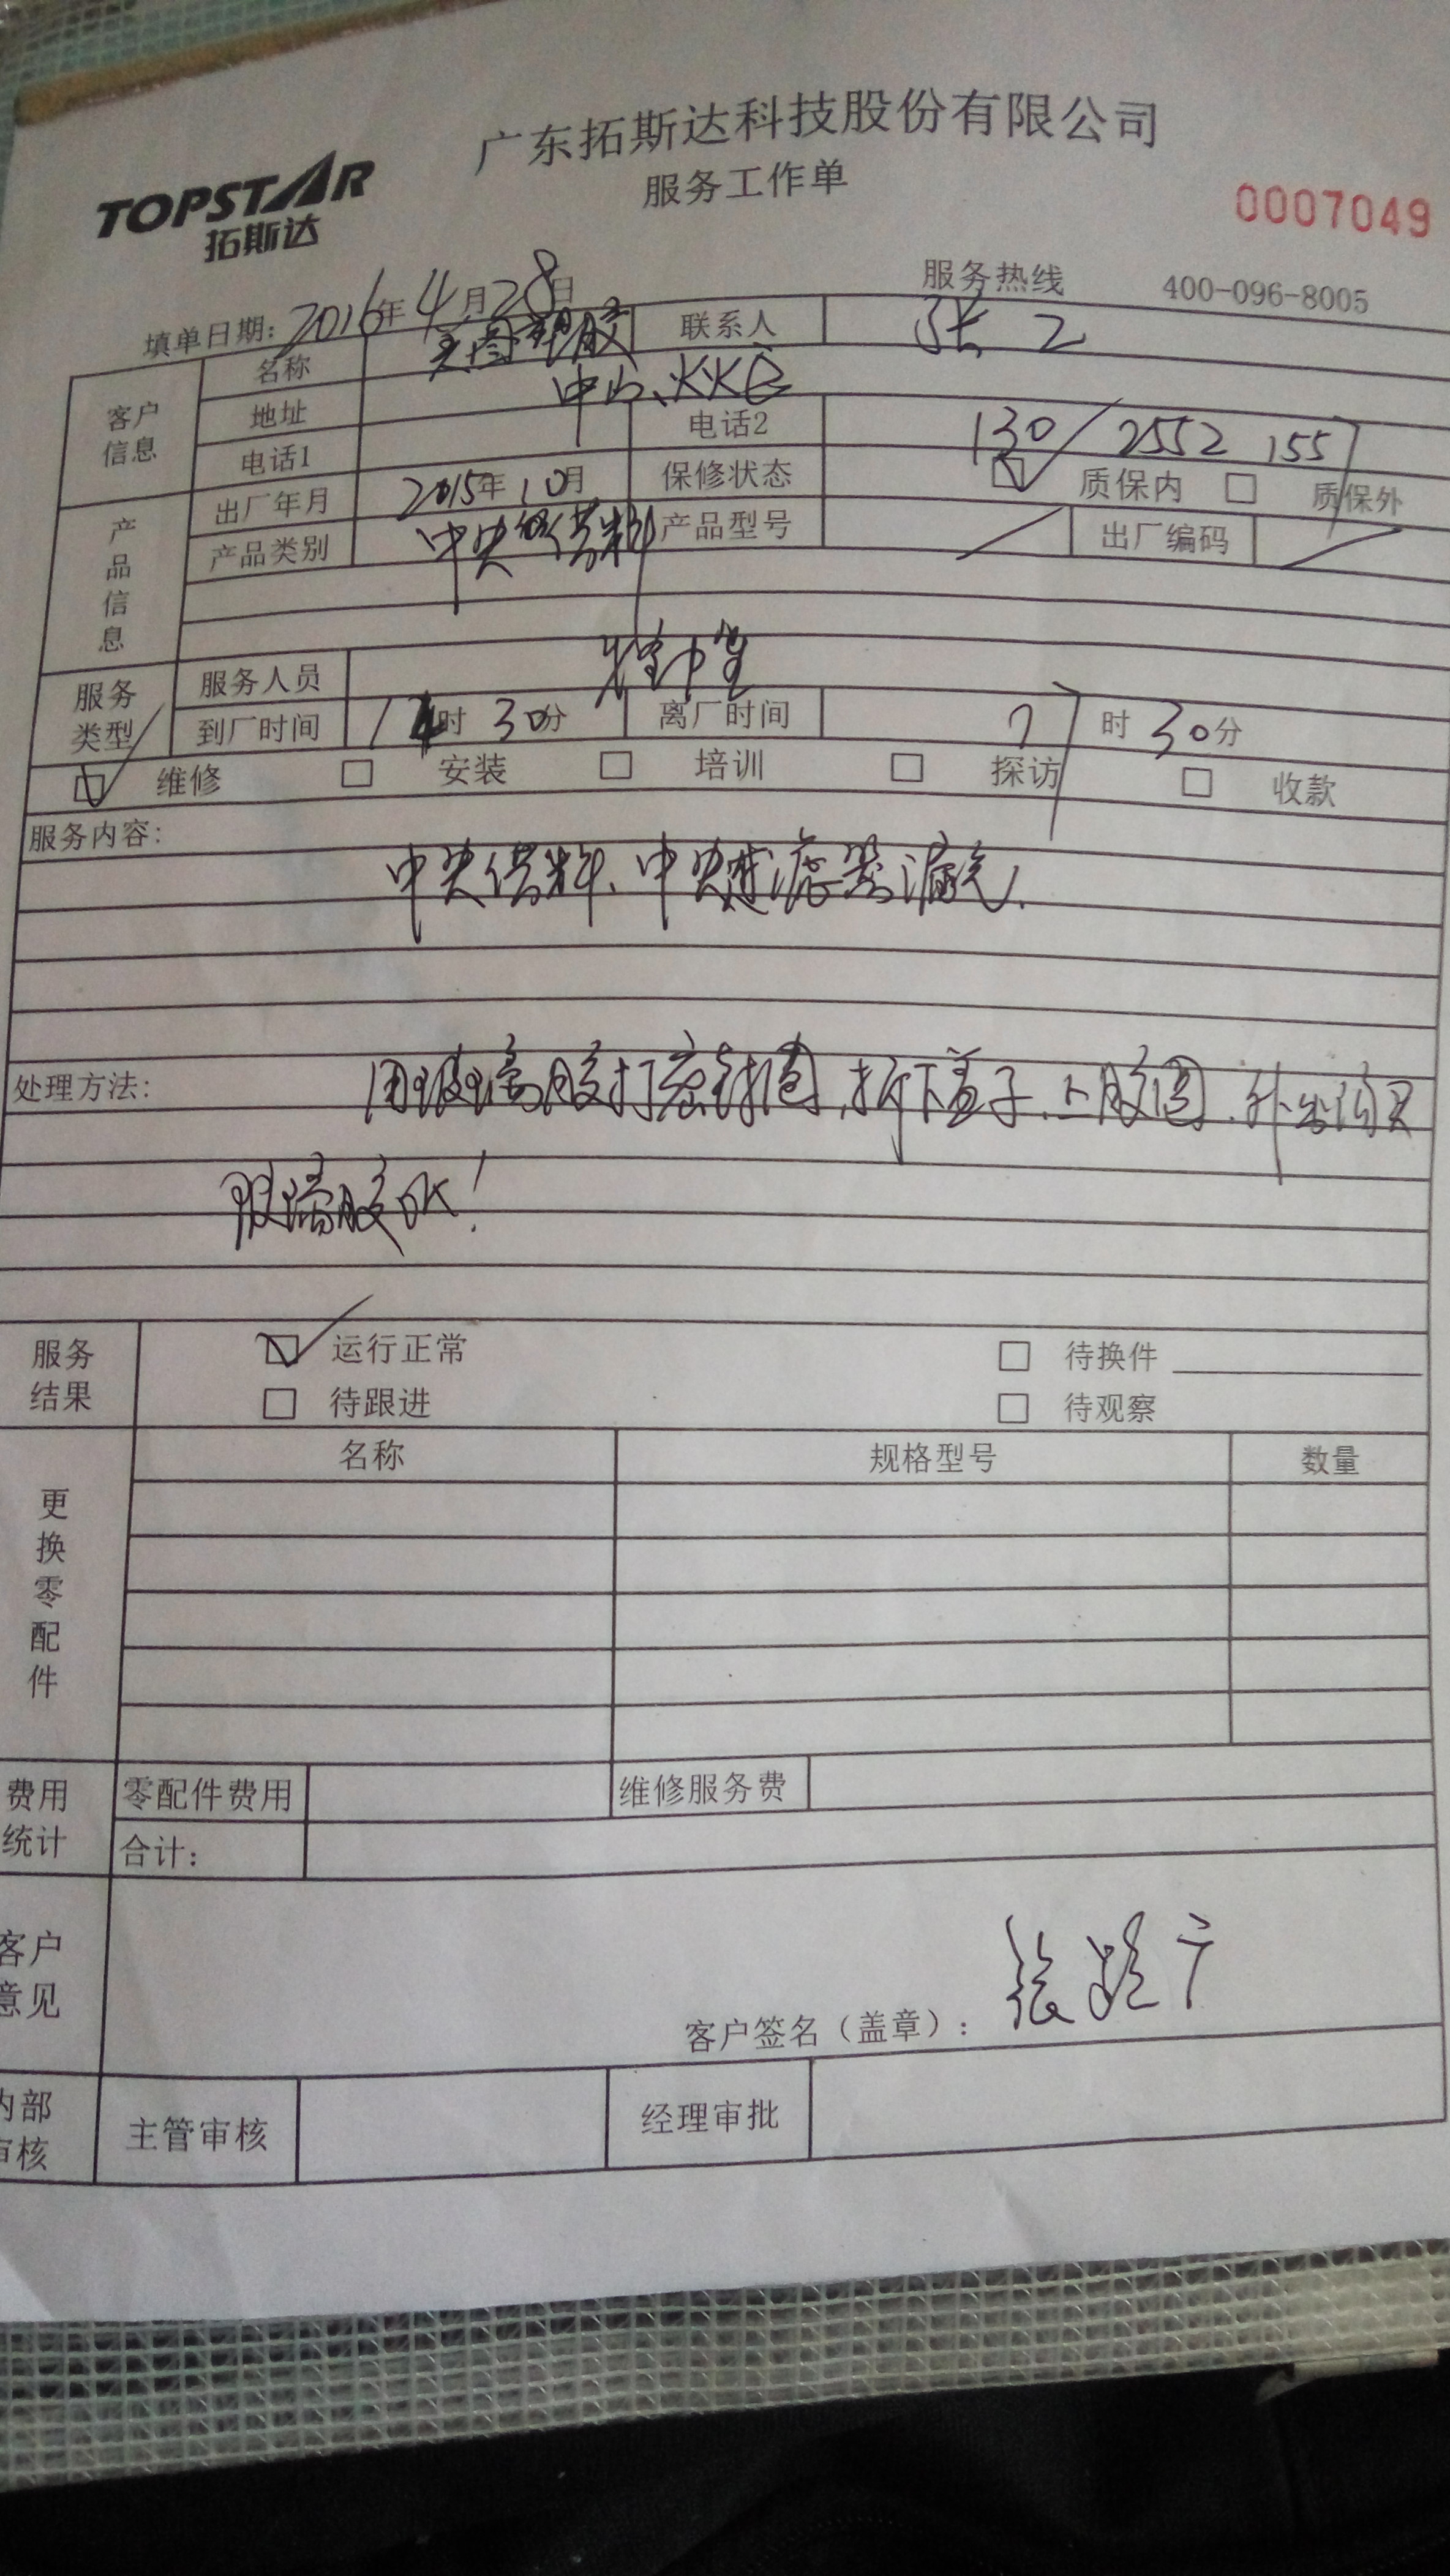 广东拓斯达科技股份有限公司
TOPSTAR
拓斯达
服务工作单
0007049
服务热线 400-096-8005
填单日期: 2016年4月28日
客户信息
名称 塑胶 联系人 张工
地址 中山
电话1 电话2 130 2552 155
产品信息
出厂年月 2015年10月 保修状态 质保内 质保外
产品类别 中央供料 产品型号 / 出厂编码 /
服务类型
服务人员
到厂时间 时30分 离厂时间 时30分
维修 安装 培训 探访 收款
服务内容:
中央供料、中央过滤器漏气.
处理方法:
用玻璃胶打密封圈,拆下盖子、上胶圈.外出购买
玻璃胶水!
服务结果
运行正常 待换件
待跟进 待观察
更换零配件
名称 规格型号 数量
费用统计
零配件费用 维修服务费
合计:
客户意见
客户签名(盖章): 张
内部审核
主管审核 经理审批